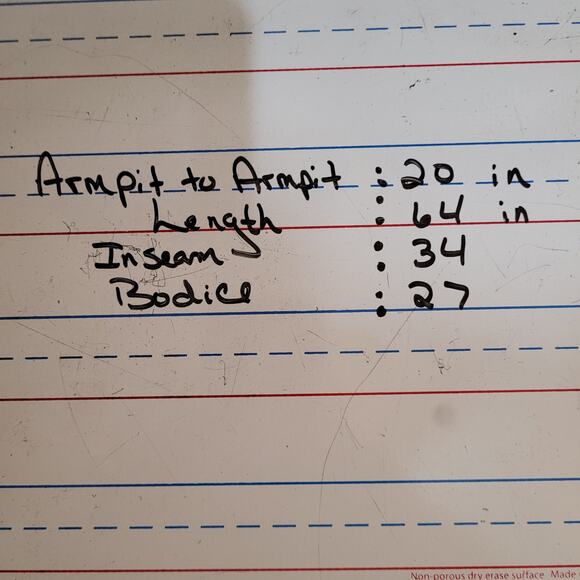 Armpit to Armpit : 20 in
Length : 64 in
Inseam : 34
Bodice : 27
Non-porous dry erase surface Made